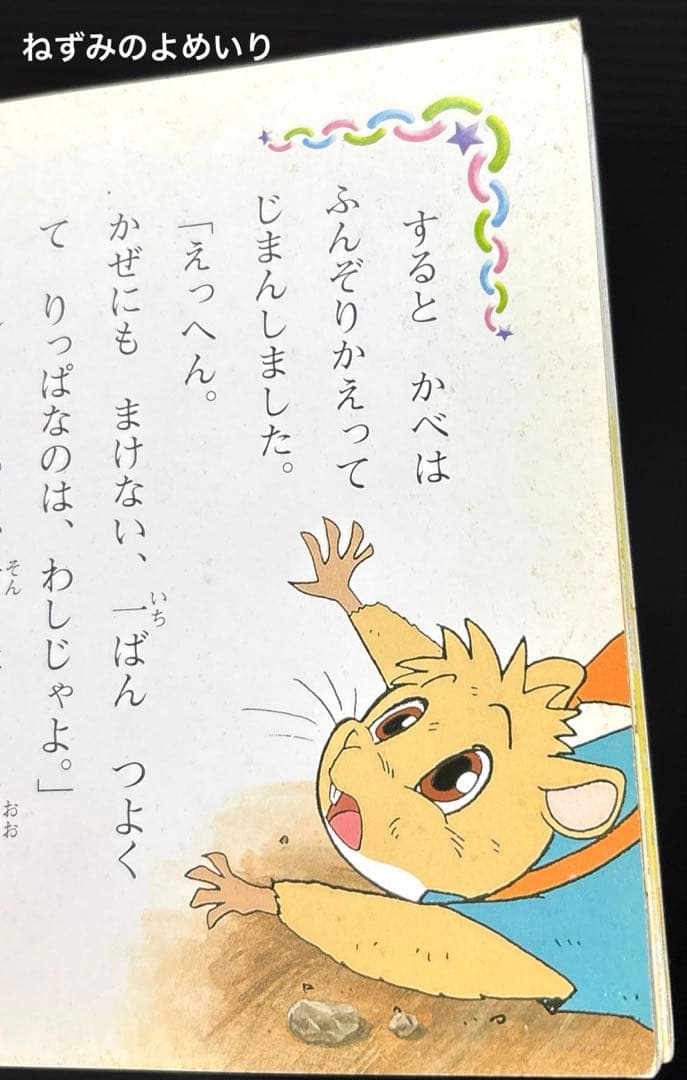 ねずみのよめいり
すると　かべは
ふんぞりかえって
じまんしました。
「えっへん。
かぜにも　まけない、一ばん　つよく
いち
て　りっぱなのは、わしじゃよ。」
そん
おお